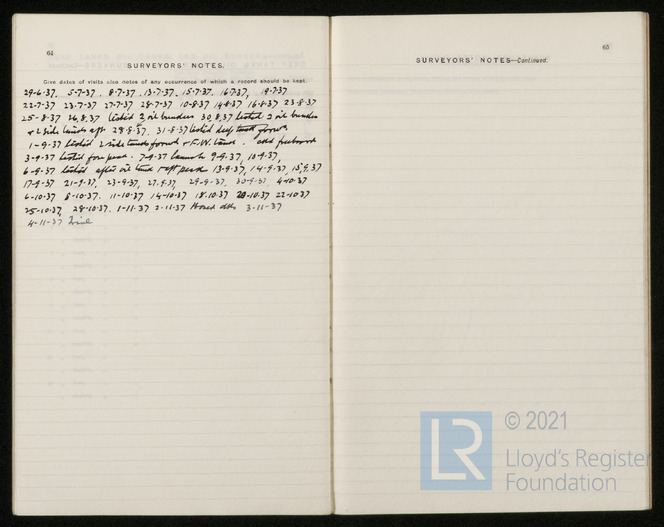 64
SURVEYORS' NOTES.
Give dates of visits also notes of any occurrence of which a record should be kept.
29-6-37. 5-7-37. 8-7-37. 13-7-37. 15-7-37. 16.7.37, 19-7-37
22-7-37 23-7-37 27-7-37 28-7-37 10-8-37 14-8-37 16-8-37 23-8-37
25-8-37 26.8.37 tested 2 oil bunkers 30.8.37 tested 2 oil bunkers
& 2 side tanks aft 28-8-37. 31-8-37 tested deep tank forwd
1-9-37 tested 2 side tanks forwd & F.W. tank. and freeboard
3-9-37 tested fore peak. 7-9-37 launch 9-9-37, 10-9-37,
6-9-37 tested after oil tank & aft peak 13-9-37, 14-9-37, 15.9.37
17-9-37 21-9-37. 23-9-37, 27.9.37, 29-9-37. 30-9-37. 4-10-37
6-10-37 8-10-37. 11-10-37 14-10-37 18.10.37 20-10-37 22-10-37
25-10.37, 28-10-37. 1-11-37 2-11-37 3-11-37
4-11-37 Trial
65
SURVEYORS' NOTES—Continued.
LR
© 2021
Lloyd's Register
Foundation